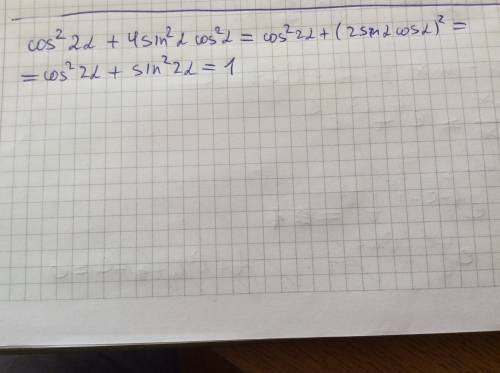 cos² 2α + 4 sin² α cos² α = cos² 2α + (2 sin α cos α)² =
= cos² 2α + sin² 2α = 1